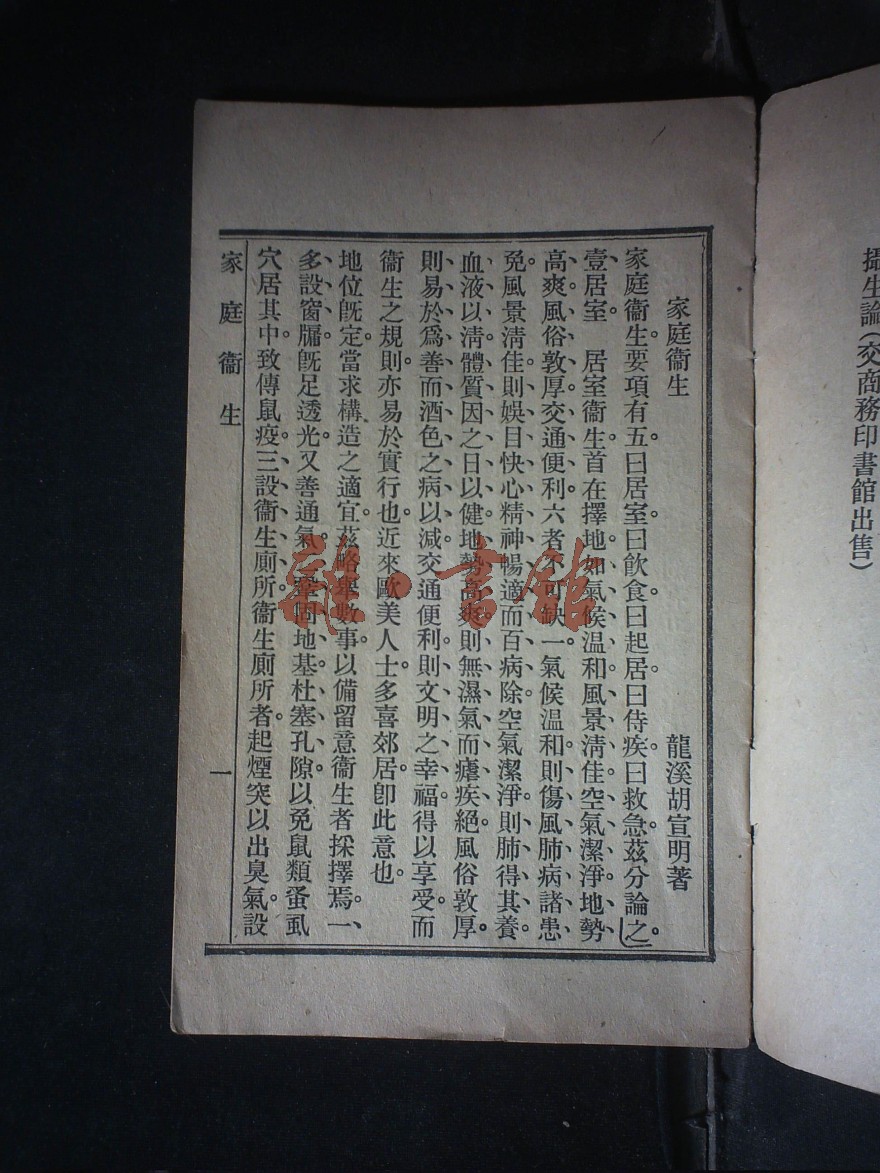 攝生論(交商務印書館出售)
家庭衞生
龍溪胡宣明著
家庭衞生要項有五。曰居室。曰飲食。曰起居。曰侍疾。曰救急。茲分論之。
壹居室　居室衞生。首在擇地。如氣候温和、風景淸佳、空氣潔淨、地勢
高爽、風俗敦厚、交通便利。六者不可缺一。氣候温和、則傷風肺病諸患
免。風景淸佳、則娛目快心、精神暢適、而百病除。空氣潔淨、則肺得其養、
血液以淸、體質因之日以健。地勢高爽、則無濕氣、而瘧疾絕。風俗敦厚。
則易於爲善、而酒色之病以減。交通便利、則文明之幸福、得以享受。而
衞生之規則、亦易於實行也。近來歐美人士。多喜郊居。卽此意也。
地位旣定、當求構造之適宜。茲略舉數事、以備留意衞生者採擇焉。一、
多設窗牖。旣足透光。又善通氣。二、鞏固地基、杜塞孔隙。以免鼠類蚤虱
穴居其中。致傳鼠疫。三、設衞生廁所。衞生廁所者。起煙突以出臭氣。設
家庭衞生
一
雜·書館